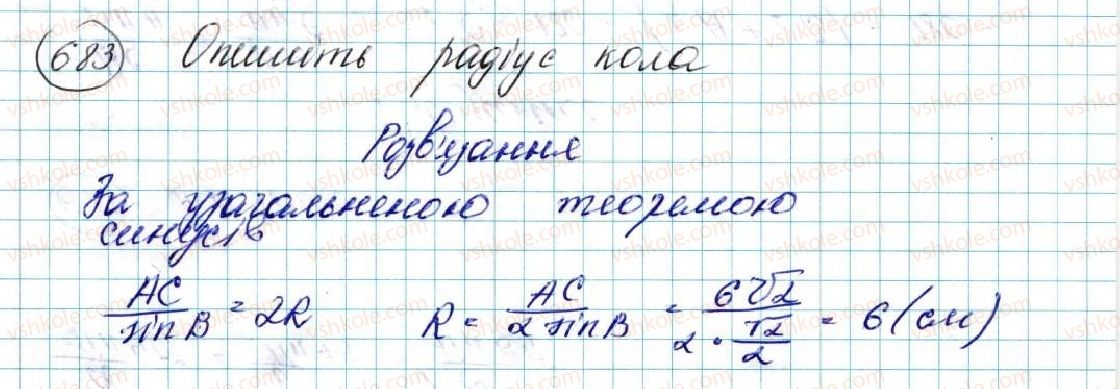 683 Опишіть радіус кола
Розв'язання
За узагальненою теоремою
синусів
AC/sin B = 2R R = AC/(2 sin B) = 6√2/(2 · √2/2) = 6 (см)